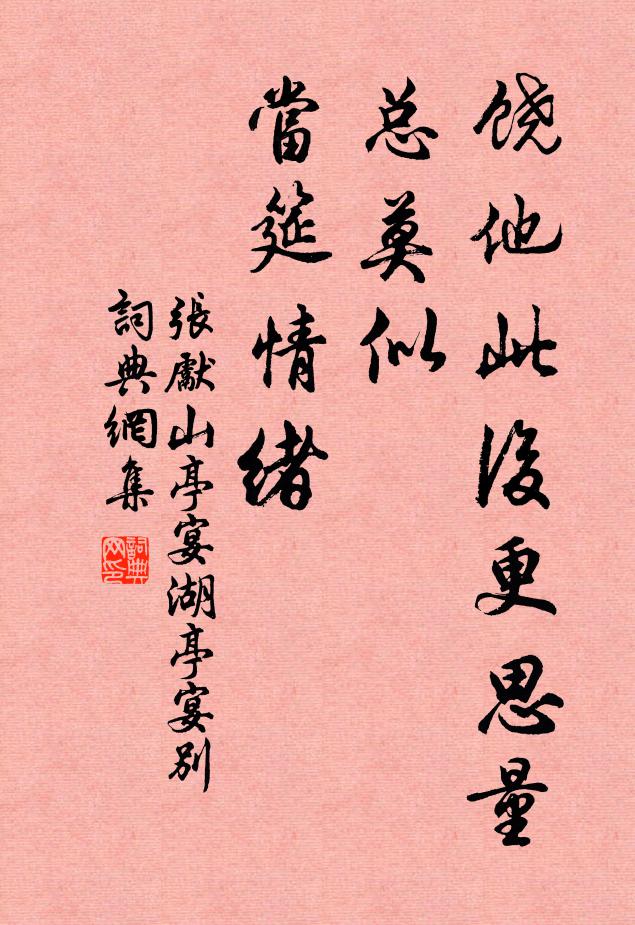 饶他此後更思量
总莫似
當筵情緒
張獻山亭宴湖亭宴別
詞典網集
詞典網印